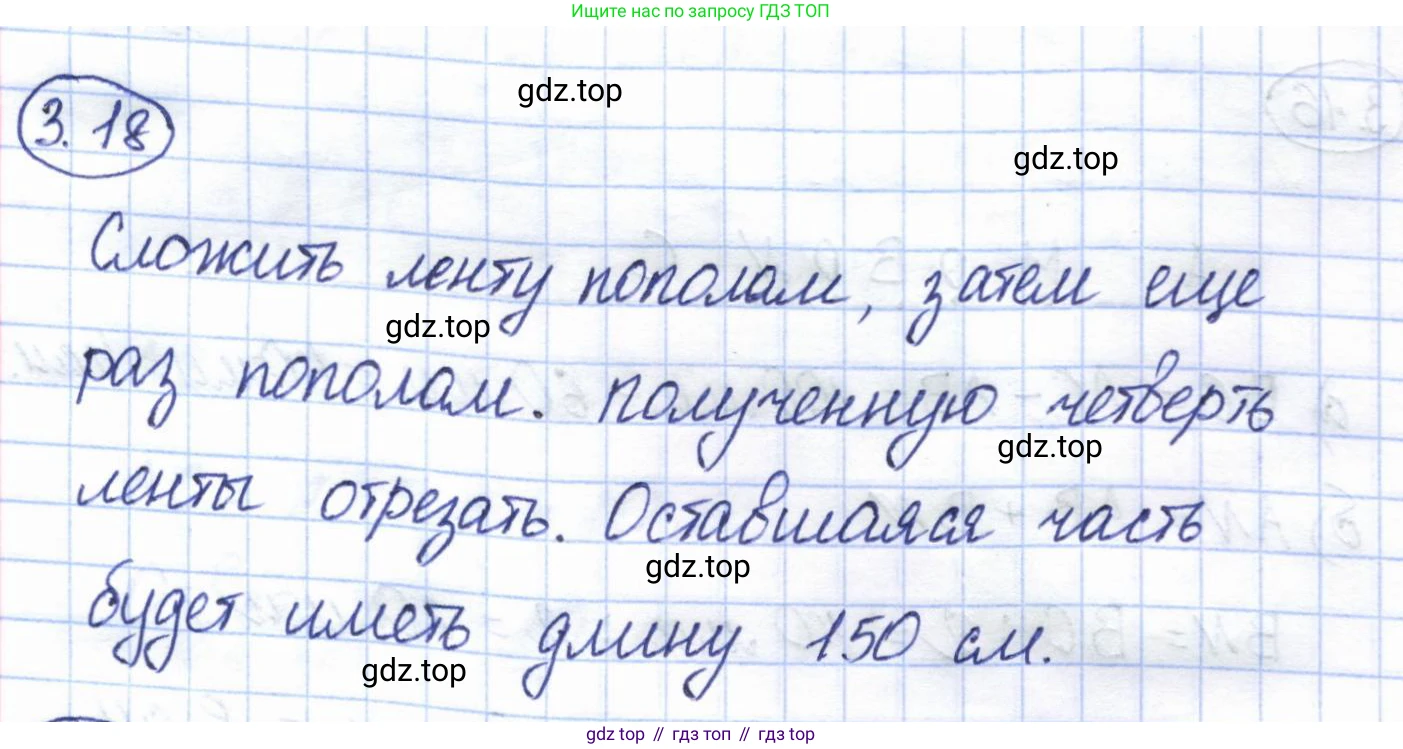 Ищите нас по запросу ГДЗ ТОП
3.18
gdz.top
gdz.top
Сложить ленту пополам, затем еще
gdz.top
раз пополам. Полученную четверть
gdz.top
ленты отрезать. Оставшаяся часть
gdz.top
будет иметь длину 150 см.
gdz.top
gdz top // гдз топ // гдз top